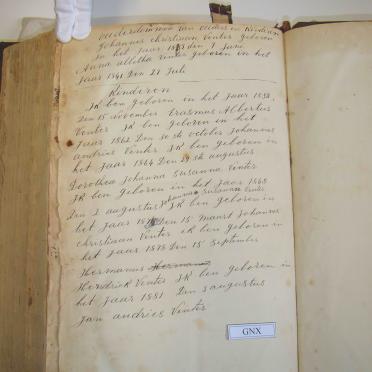 Ouderdom van Ouders en Kinderen
Johannes christiaan Venter geboren
in het Jaar den 1 Junie
Anna aletha venter geboren in het
Jaar 1841 Den 21 Juli
Kinderen
JK ben geboren in het Jaar 1858
Den 15 November Erasmus Albertus
Venter JK ben geboren in het
Jaar 1862 Den 30 sk october Johannes
andries Venter JK ben geboren in
het Jaar 1864 Den 29 sk augustus
Dorothea Johanna Susanna Venter
JK ben geboren in het Jaar 1868
Den 2 augustus Johanna Susanna Venter
JK ben geboren in
het Jaar Den 15 Maart Johannes
christiaan Venter ik ben geboren in
het Jaar 1878 Den 15 September
Hermanus
Hendrick Venter JK ben geboren in
het Jaar 1881 Den 3 augustus
Jan andries Venter
GNX